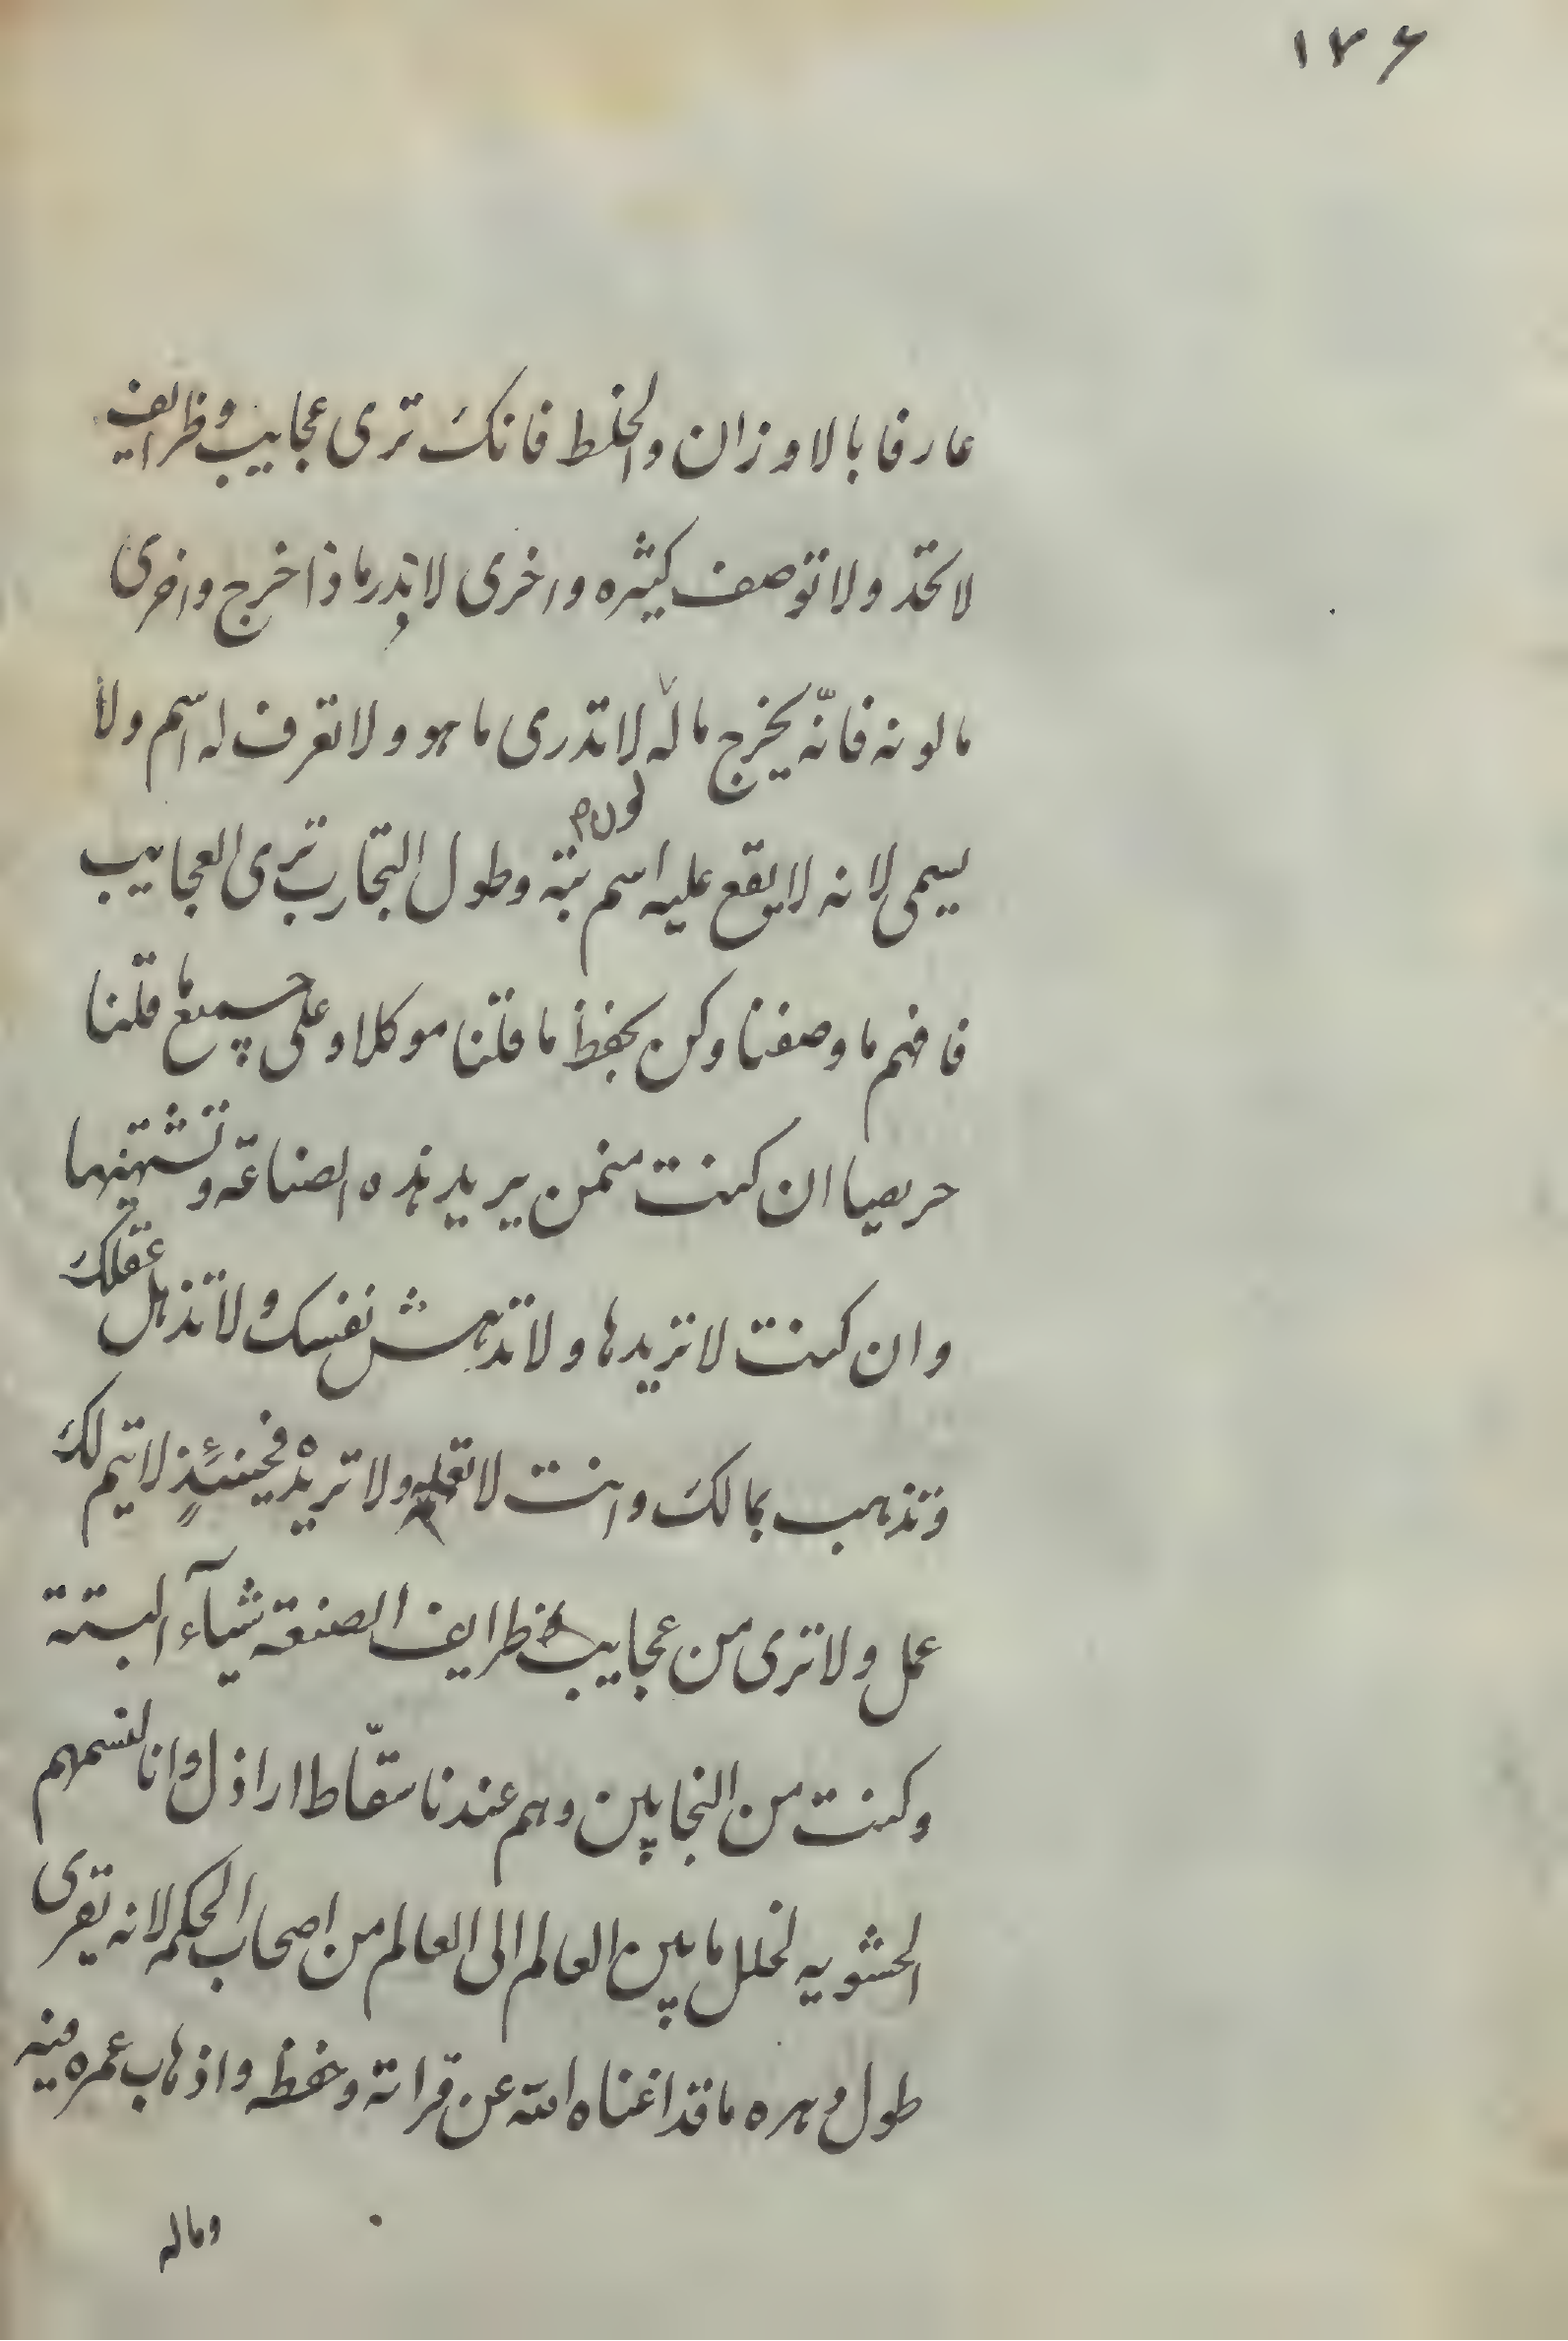 ١٧۶
عارفا بالاوزان والخلط فانك ترى عجايب وظرايف
لا تحد ولا توصف كثيره واخرى لا تدر ماذا خرج واخرى
ما لونه فانّه يخرج ماله لا تدرى ما هو ولا تعرف له اسم ولا
لون م
يسمى لانه لا يقع عليه اسم بتة وطول التجارب ترى العجايب
فافهم ما وصفنا وكن بحفظ ما قلنا موكلا وعلى جميع ما قلنا
حريصا ان كنت ممن يريد هذه الصناعة وتشتهيها
وان كنت لا تريدها ولا تدهش نفسك ولا تذهل عقلك
وتذهب بمالك وانت لا تعلم ولا تريده فحينئذٍ لا يتم لك
عمل ولا ترى من عجايب ظرايف الصنعة شيآء البتة
وكنت من النجابين وهم عندنا سقّاط اراذل وانا لنسمهم
الحشويه لخلل ما بين العالم الى العالم من اصحاب الحكمه لانه يقرى
طول دهره ما قد اغناه الله عن قراته وحفظه واذهاب عمره فيه
وماله